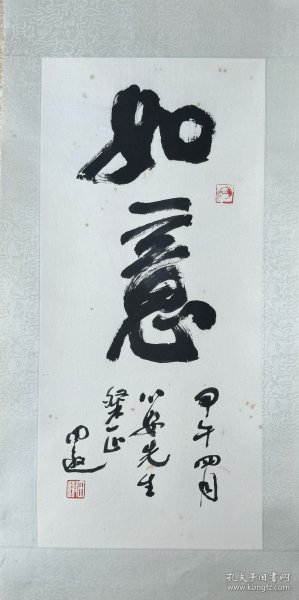 如意
甲午四月
小安先生
正
孔夫子旧书网